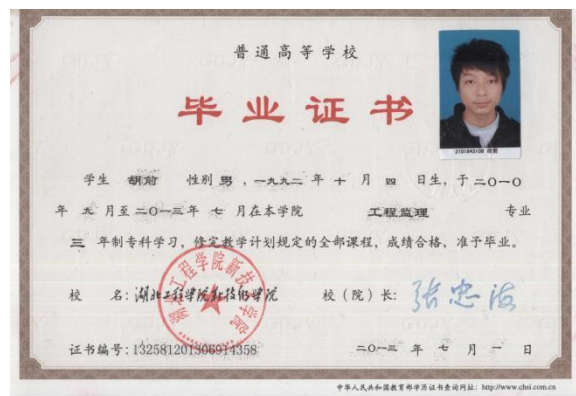 普通高等学校
毕业证书
2101043109 胡前
学生 胡前 性别 男 ，一九九二 年 十 月 四 日生，于 二〇一〇
年 九 月至 二〇一三 年 七 月在本学院 工程监理 专业
三 年制专科学习，修完教学计划规定的全部课程，成绩合格，准予毕业。
校 名：湖北工程学院新技术学院 校（院）长：张忠海
湖北工程学院新技术学院
证书编号：132581201306914358 二〇一三 年 七 月 一 日
中华人民共和国教育部学历证书查询网址：http://www.chsi.com.cn